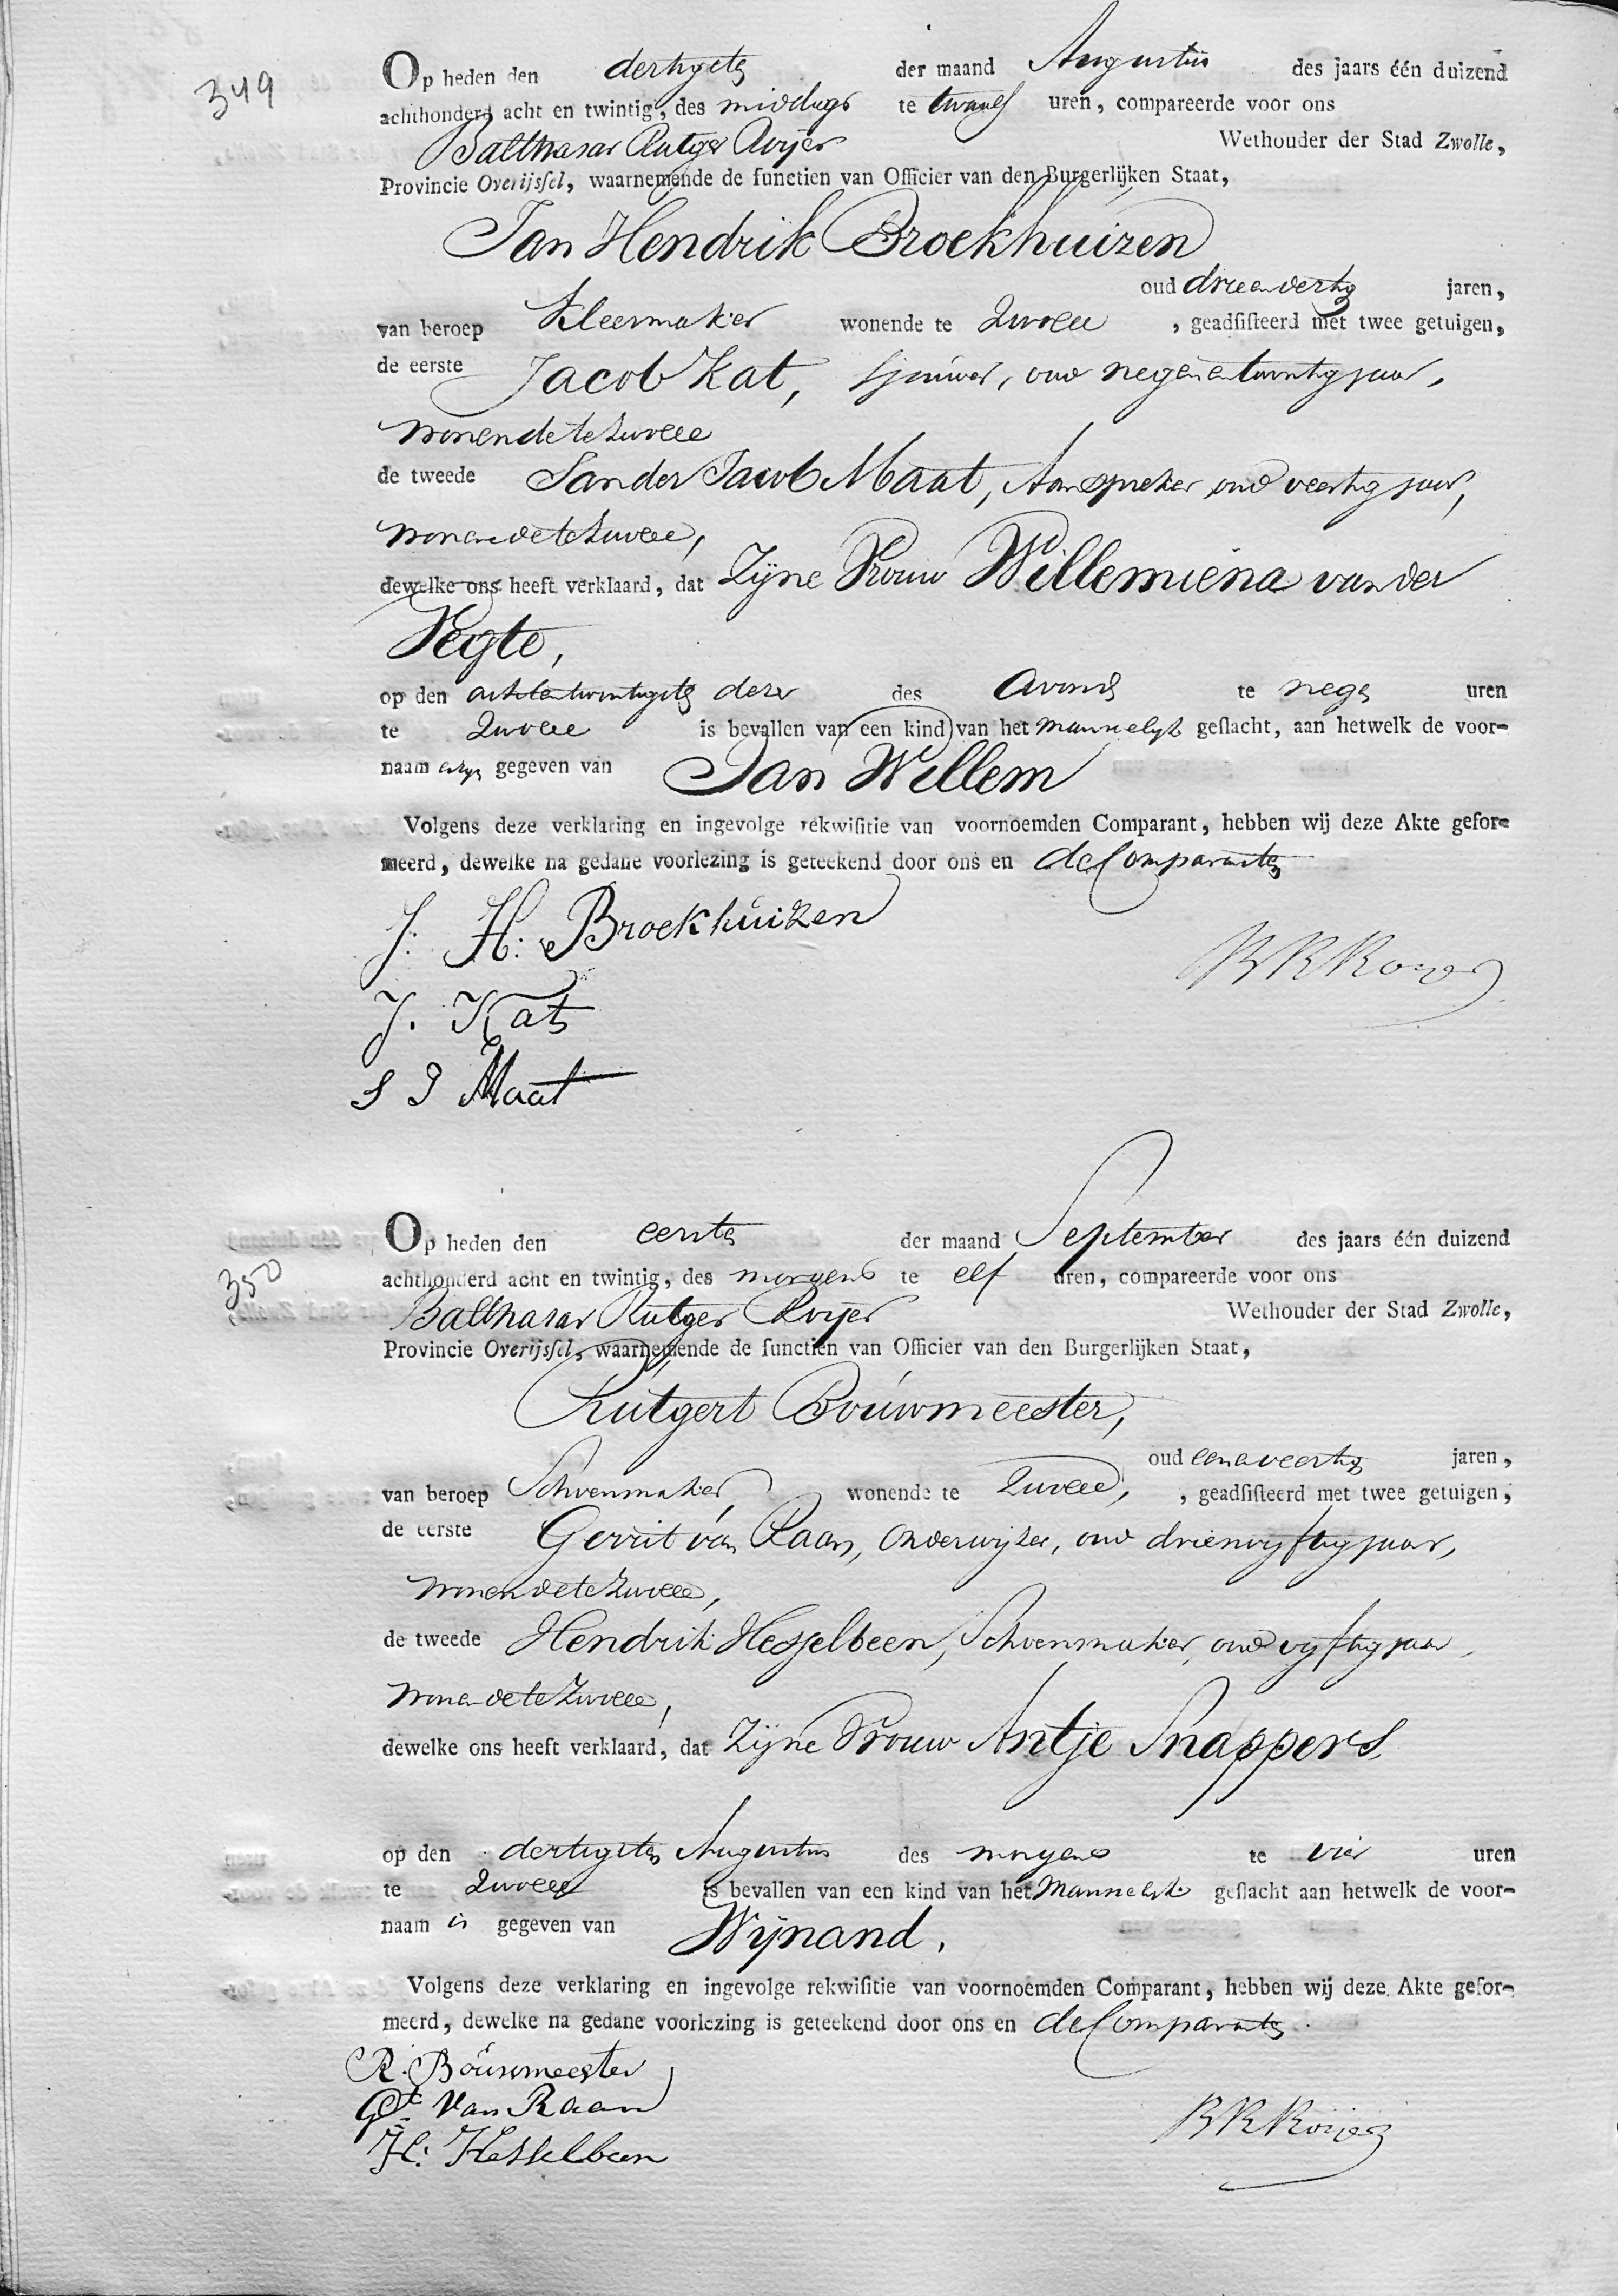 349
Op heden den dertigsten der maand Augustus des jaars één duizend
achthonderd acht en twintig, des middags te twaalf uren, compareerde voor ons
Balthasar Rutger Roijer Wethouder der Stad Zwolle,
Provincie Overijssel, waarnemende de functien van Officier van den Burgerlijken Staat,
Jan Hendrik Broekhuizen
oud drieendertig jaren,
van beroep Kleermaker wonende te Zwolle , geadsisteerd met twee getuigen,
de eerste Jacob Kat, sjouwer, oud negenentwintig jaar,
wonende te Zwolle
de tweede Sander Jacob Maat, Aanspreker oud veertig jaar,
wonende te Zwolle,
dewelke ons heeft verklaard, dat Zijne Vrouw Willemiena van der
Vegte,
op den achtentwintigsten dezer des avonds te negen uren
te Zwolle is bevallen van een kind van het mannelijk geslacht, aan hetwelk de voor-
naam gegeven van Jan Willem
Volgens deze verklaring en ingevolge rekwisitie van voornoemden Comparant, hebben wij deze Akte gefor-
meerd, dewelke na gedane voorlezing is geteekend door ons en de Comparanten
J. H. Broekhuizen
BR Roijer
J. Kat
S J Maat
350
Op heden den eersten der maand September des jaars één duizend
achthonderd acht en twintig, des morgens te elf uren, compareerde voor ons
Balthasar Rutger Roijer Wethouder der Stad Zwolle,
Provincie Overijssel, waarnemende de functien van Officier van den Burgerlijken Staat,
Rutgert Bouwmeester,
oud eenenveertig jaren,
van beroep Schoenmaker, wonende te Zwolle, , geadsisteerd met twee getuigen,
de eerste Gerrit van Raan, Onderwijzer, oud drienvijftig jaar,
wonende te Zwolle,
de tweede Hendrik Hesselbeen, Schoenmaker, oud vijftig jaar,
wonende te Zwolle,
dewelke ons heeft verklaard, dat Zijne Vrouw Antje Snappers,
op den dertigsten Augustus des morgens te vier uren
te Zwolle is bevallen van een kind van het Mannelijk geslacht aan hetwelk de voor-
naam is gegeven van Wijnand.
Volgens deze verklaring en ingevolge rekwisitie van voornoemden Comparant, hebben wij deze Akte gefor-
meerd, dewelke na gedane voorlezing is geteekend door ons en de Comparanten
R. Bouwmeester
Gt. Van Raan
BR Roijer
H. Hesselbeen